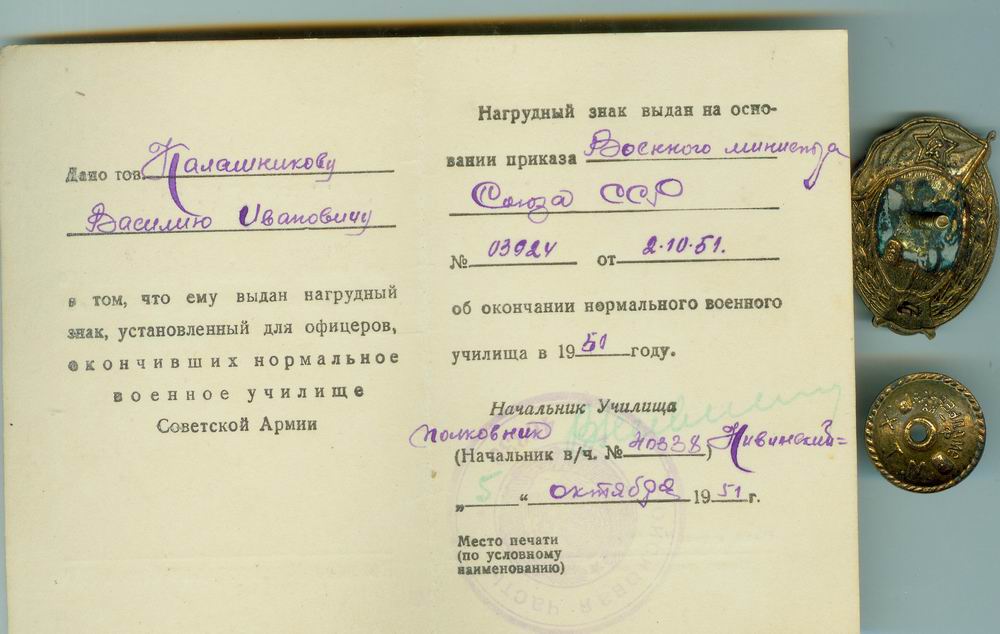 Дано тов. Калашникову
Василию Ивановичу
в том, что ему выдан нагрудный
знак, установленный для офицеров,
окончивших нормальное
военное училище
Советской Армии
Нагрудный знак выдан на осно-
вании приказа Военного министра
Союза ССР
№ 03924 от 2.10.51.
об окончании нормального военного
училища в 1951 году.
Начальник Училища
полковник
(Начальник в/ч. № 40338)
„5“ октября 1951 г.
Место печати
(по условному
наименованию)